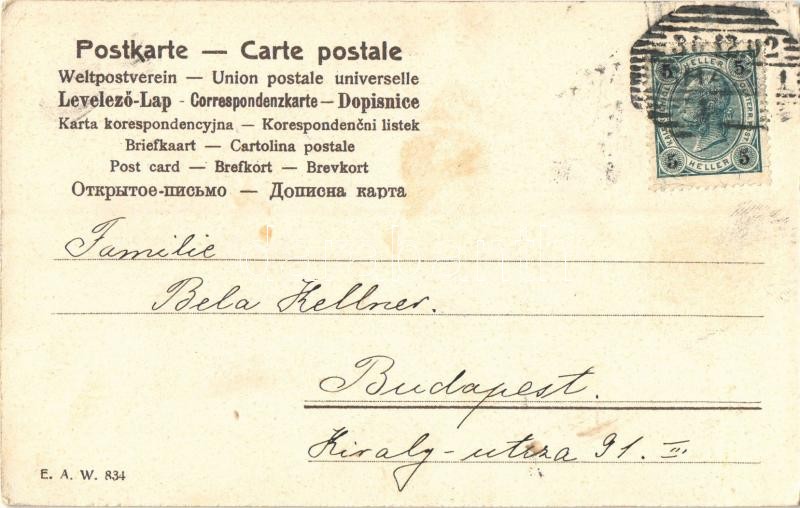 Postkarte — Carte postale
Weltpostverein — Union postale universelle
Levelező-Lap - Correspondenzkarte — Dopisnice
Karta korespondencyjna — Korespondenční listek
Briefkaart — Cartolina postale
Post card — Brefkort — Brevkort
Открытое-письмо — Дописна карта
5 HELLER 5
5 HELLER 5
Familie
Bela Kellner.
Budapest.
Kiraly-utcza 91. III.
E. A. W. 834